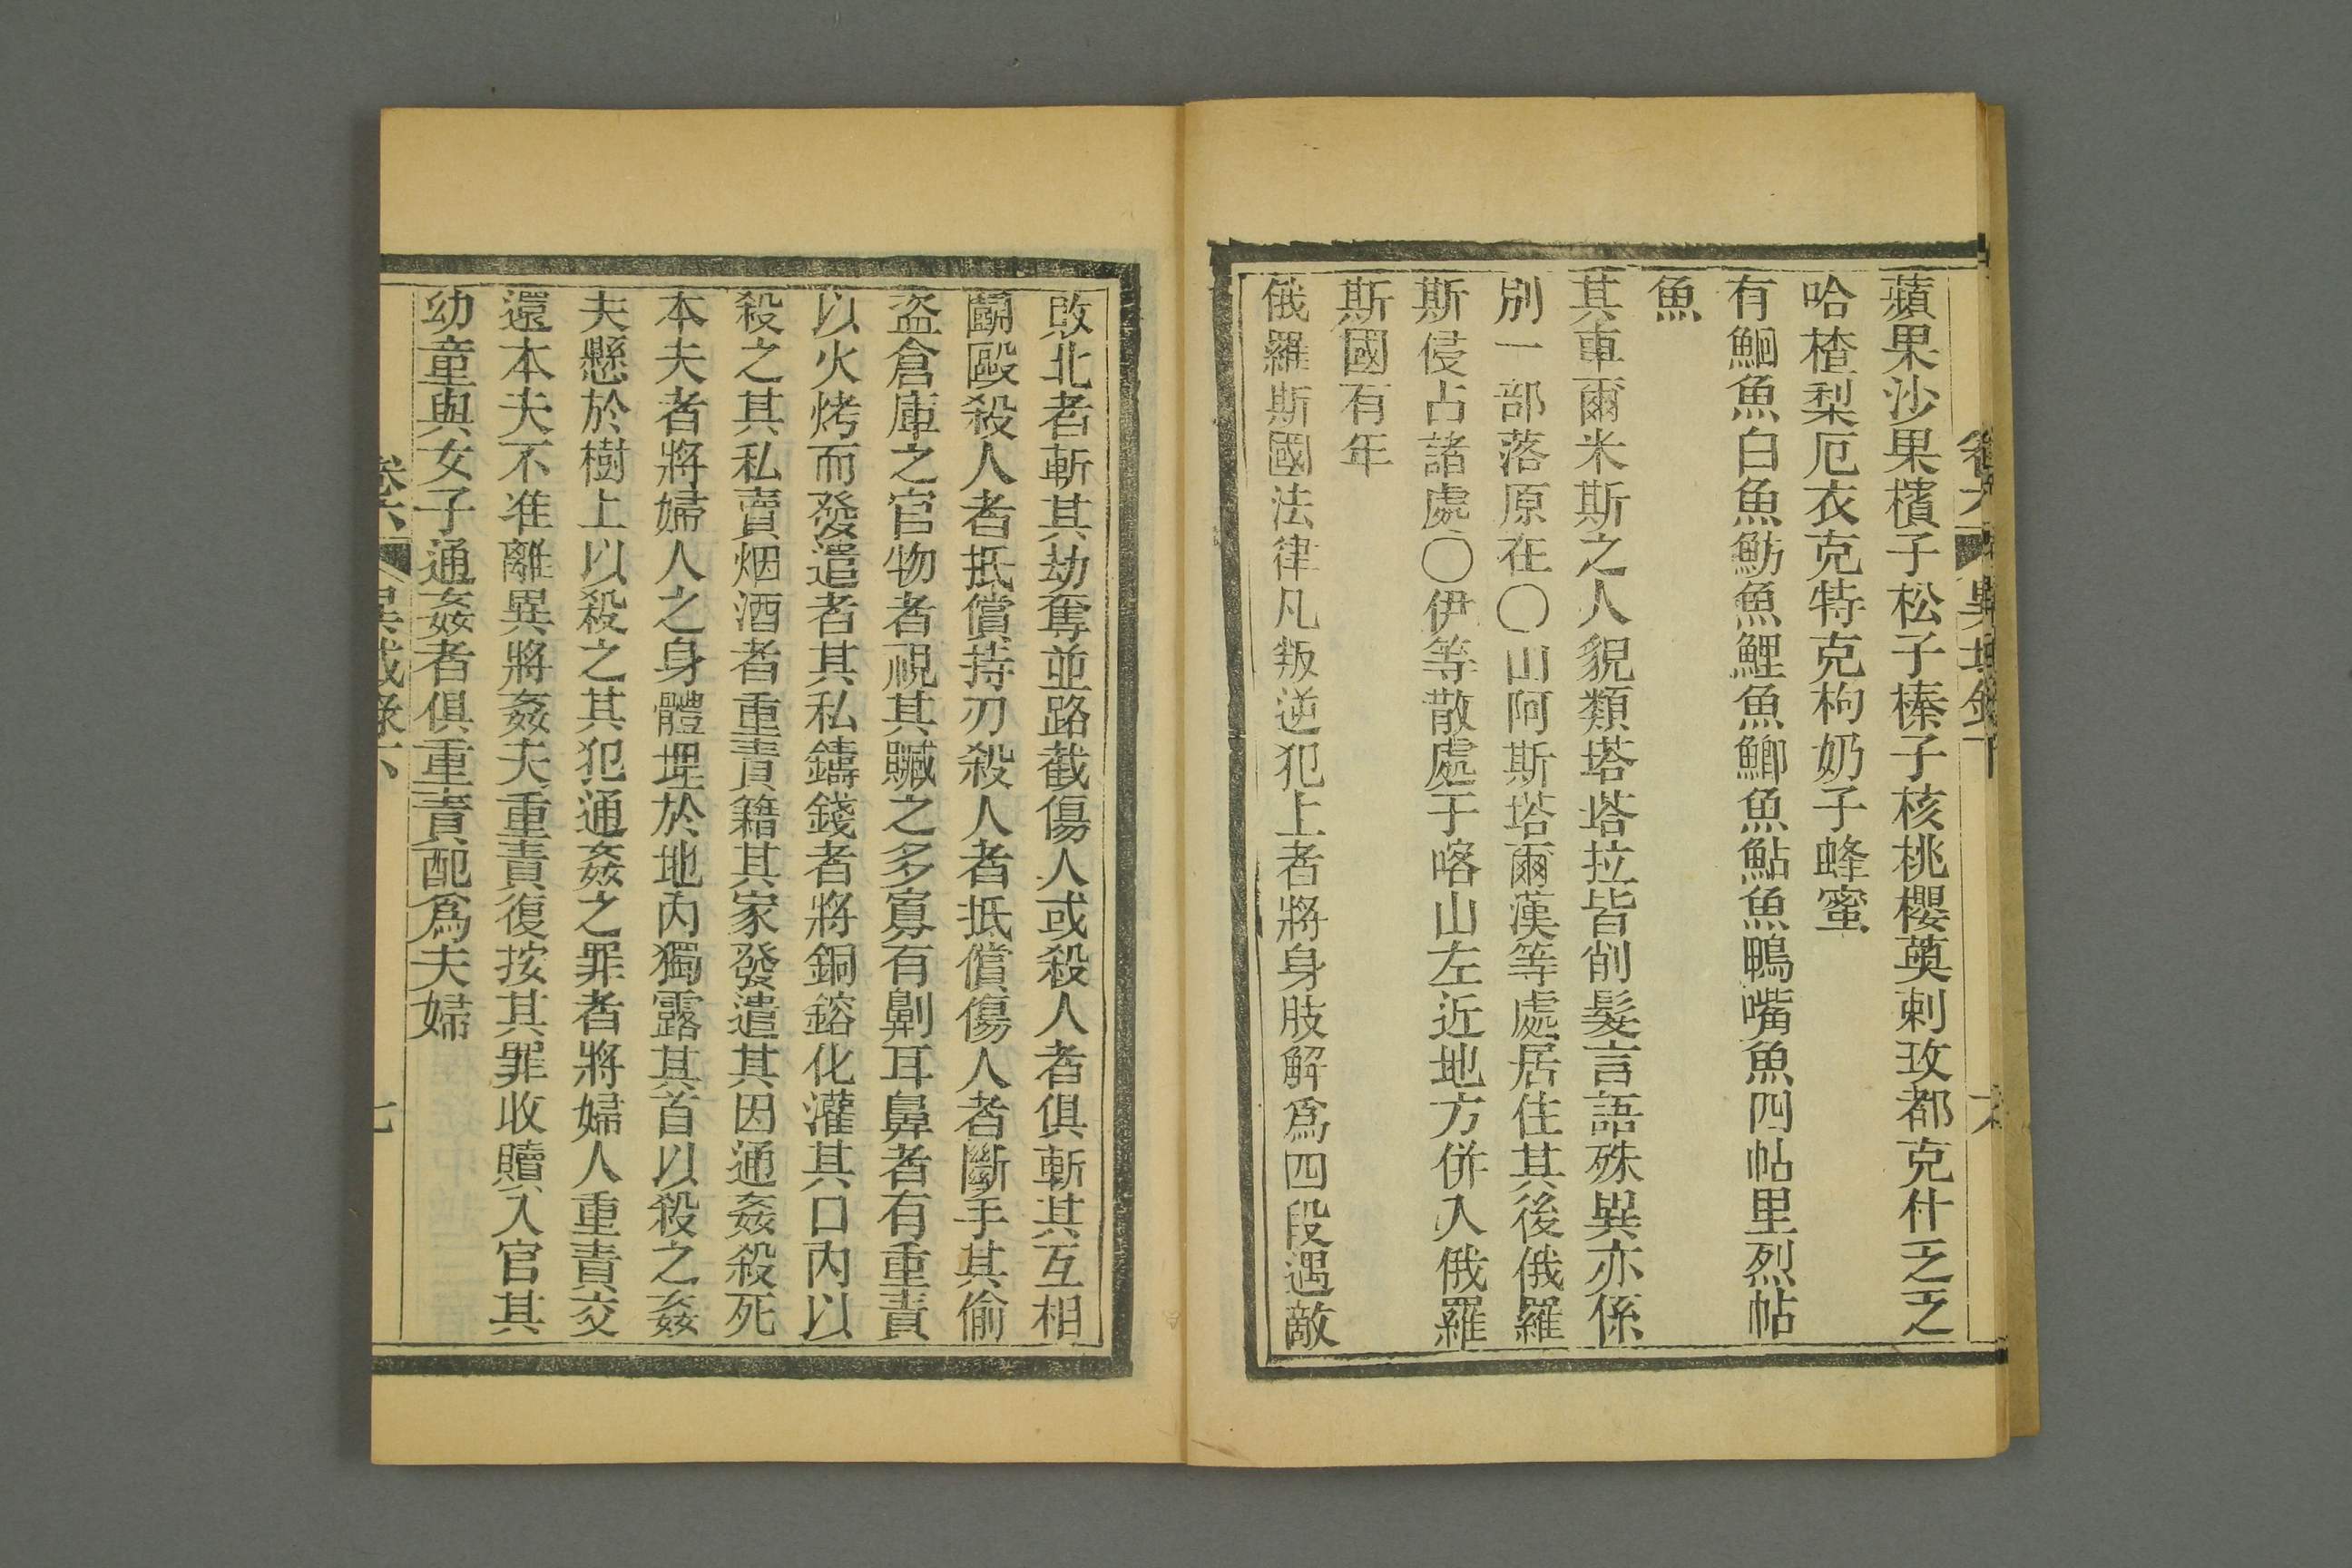 蘋果沙果檳子松子榛子核桃櫻薁剌玫都克什乏乏
哈楂梨厄衣克特克枸奶子蜂蜜
有鮰魚白魚魴魚鯉魚鯽魚鮎魚鴨嘴魚四帖里烈帖
魚
其車爾米斯之人貌類塔塔拉皆削髮言語殊異亦係
別一部落原在〇山阿斯塔爾漢等處居住其後俄羅
斯侵占諸處〇伊等散處于喀山左近地方併入俄羅
斯國有年
俄羅斯國法律凡叛逆犯上者將身肢解爲四段遇敵
敗北者斬其劫奪並路截傷人或殺人者俱斬其互相
鬬毆殺人者抵償持刃殺人者抵償傷人者斷手其偷
盗倉庫之官物者視其贓之多寡有劓耳鼻者有重責
以火烤而發遣者其私鑄錢者將銅鎔化灌其口內以
殺之其私賣烟酒者重責籍其家發遣其因通姦殺死
本夫者將婦人之身體埋於地內獨露其首以殺之姦
夫懸於樹上以殺之其犯通姦之罪者將婦人重責交
還本夫不准離異將姦夫重責復按其罪收贖入官其
幼童與女子通姦者俱重責配爲夫婦
卷六 異域錄下 七